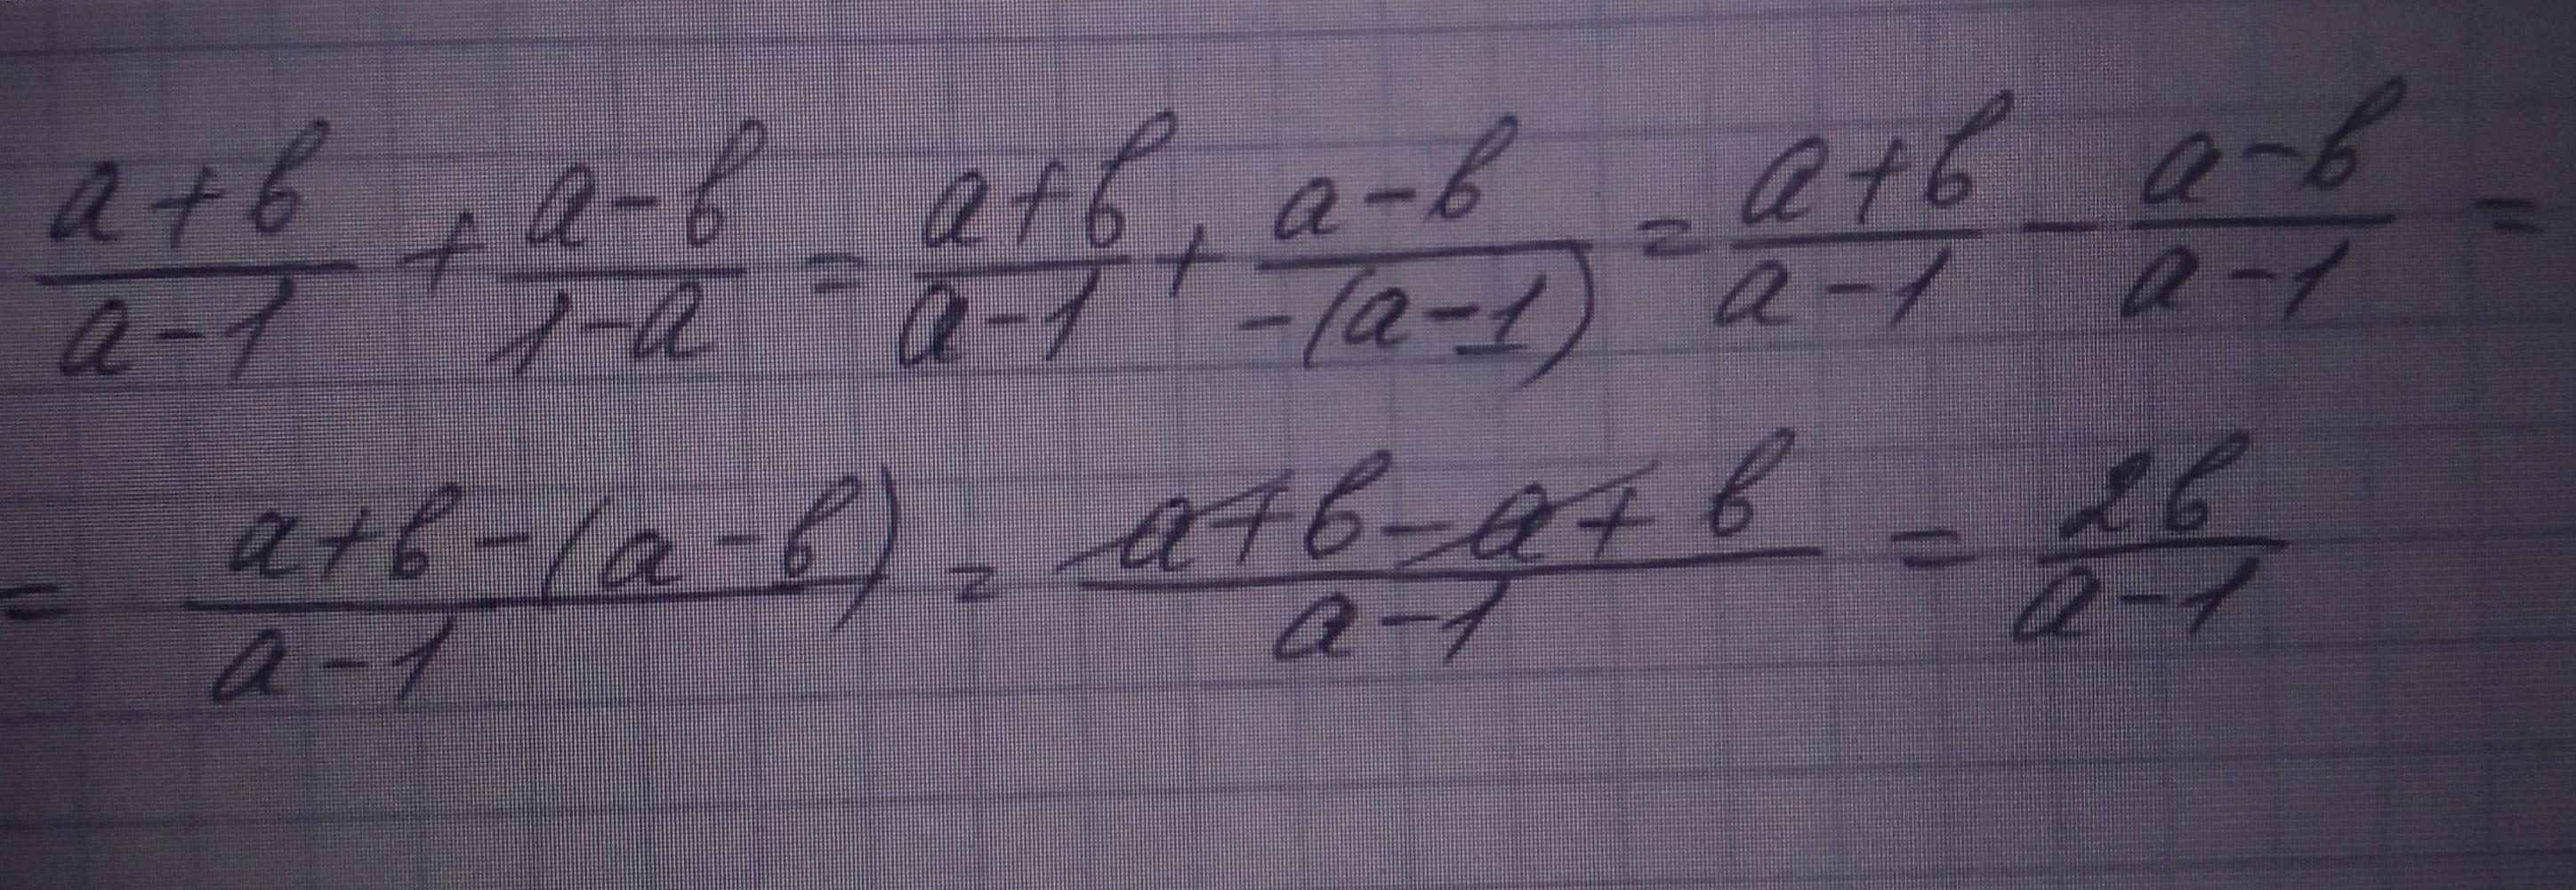 \frac{a+b}{a-1} + \frac{a-b}{1-a} = \frac{a+b}{a-1} + \frac{a-b}{-(a-1)} = \frac{a+b}{a-1} - \frac{a-b}{a-1} =
= \frac{a+b-(a-b)}{a-1} = \frac{\cancel{a}+b-\cancel{a}+b}{a-1} = \frac{2b}{a-1}